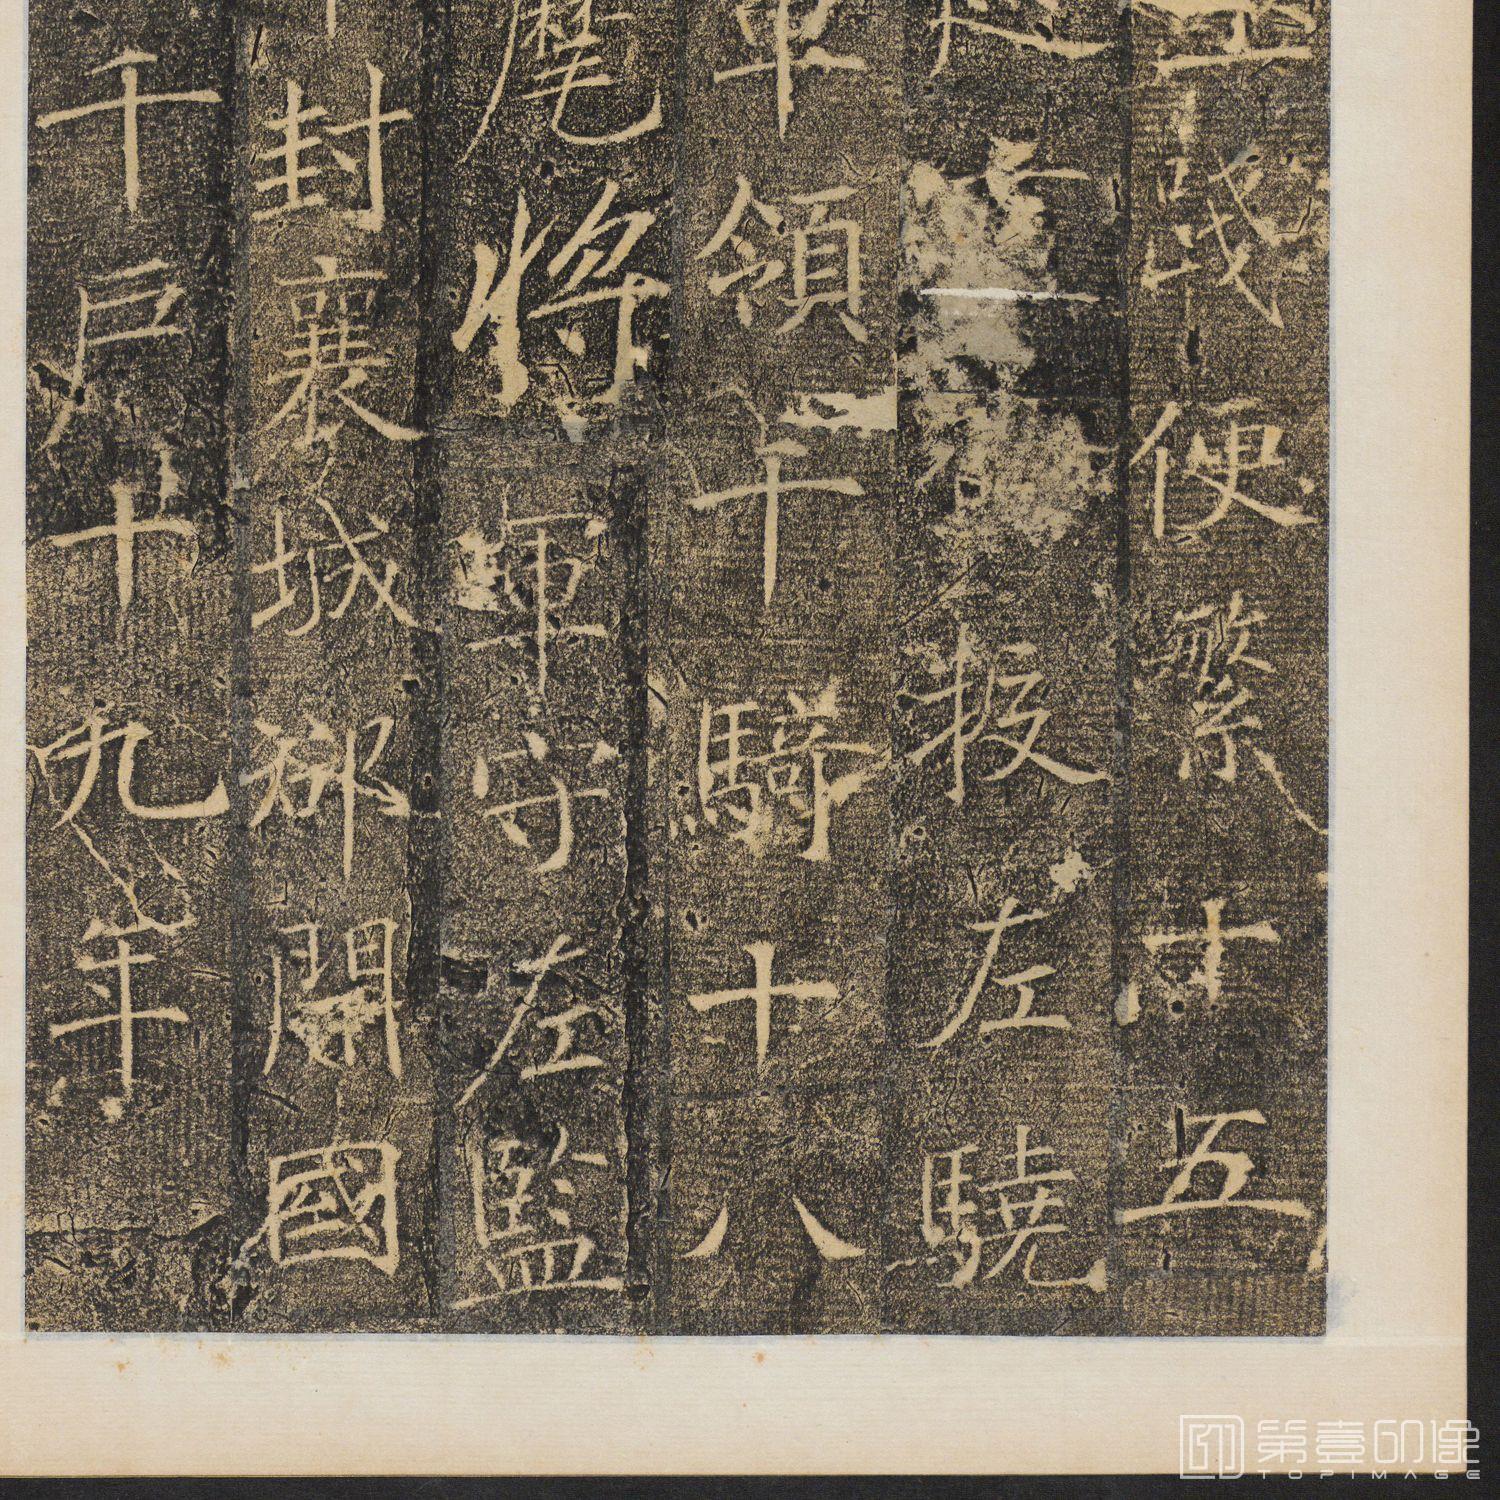 誠便繁十五
投左驍
軍領千騎十八
麾將軍守左監
封襄城郡開國
千戶十九年
第壹印像
TOPIMAGE